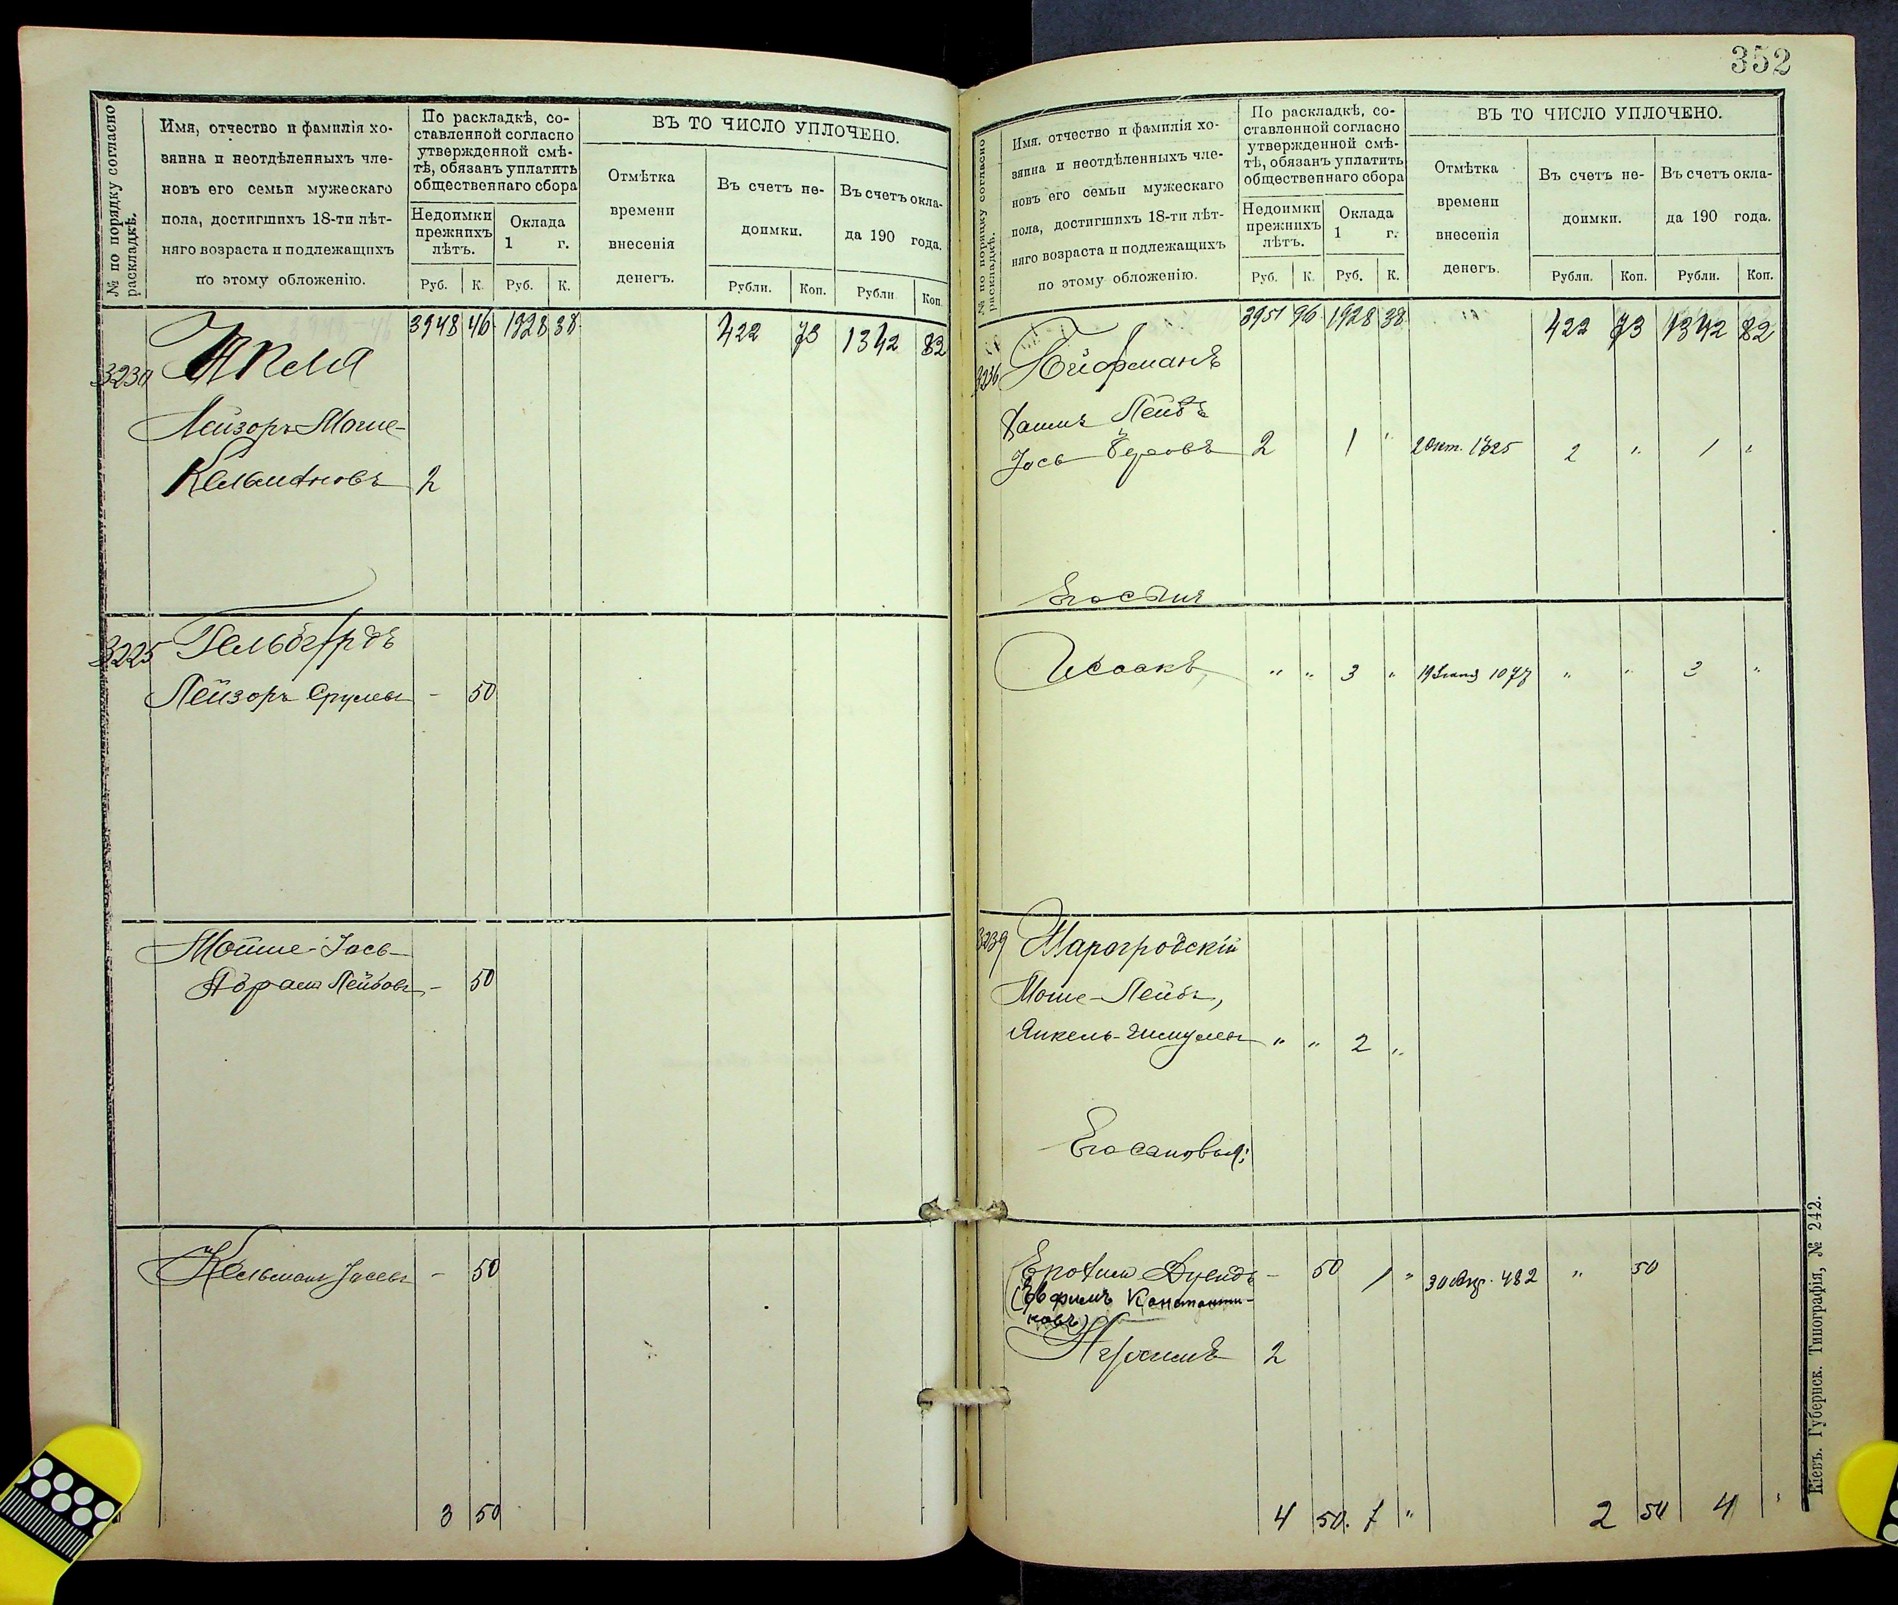 № по порядку согласно раскладкѣ.
Имя, отчество и фамилія хо-
зяина и неотдѣленныхъ чле-
новъ его семьи мужескаго
пола, достигшихъ 18-ти лѣт-
няго возраста и подлежащихъ
по этому обложенію.
По раскладкѣ, со-
ставленной согласно
утвержденной смѣ-
тѣ, обязанъ уплатить
общественнаго сбора
Недоимки
прежнихъ
лѣтъ.
Оклада
1 г.
Руб. К. Руб. К.
ВЪ ТО ЧИСЛО УПЛОЧЕНО.
Отмѣтка
времени
внесенія
денегъ.
Въ счетъ не-
доимки.
Въ счетъ окла-
да 190 года.
Рубли. Коп. Рубли Коп.
3948 46 1928 38 422 73 1342 82
Лейзоръ Моше-
Кельмановъ 2
3225
Лейзоръ Срулевъ - 50
Мошше-Іось-
Абрамъ Лейбовъ - 50
Кельманъ Іосевъ - 50
3 50
352
№ по порядку согласно раскладкѣ.
Имя, отчество и фамилія хо-
зяина и неотдѣленныхъ чле-
новъ его семьи мужескаго
пола, достигшихъ 18-ти лѣт-
няго возраста и подлежащихъ
по этому обложенію.
По раскладкѣ, со-
ставленной согласно
утвержденной смѣ-
тѣ, обязанъ уплатить
общественнаго сбора
Недоимки
прежнихъ
лѣтъ.
Оклада
1 г.
Руб. К. Руб. К.
ВЪ ТО ЧИСЛО УПЛОЧЕНО.
Отмѣтка
времени
внесенія
денегъ.
Въ счетъ не-
доимки.
Въ счетъ окла-
да 190 года.
Рубли. Коп. Рубли. Коп.
3951 96 1928 38 422 73 1342 82
3236 Гойфманъ
Лейбъ
Іось Беровъ 2 1 " 2 Окт. 1825 2 " 1 "
Его сынъ
Исаакъ " " 3 " 1077 " " 3 "
3239 Шарогродскій
Моше-Лейбъ,
Янкель-Шмулевъ " " 2 "
Его сыновья:
Ерохимъ - 50 1 " 30 482 " 50
(Ефимъ Константи-
новъ)
2
4 50 7 " 2 50 4 "
Кіевъ. Губернск. Типографія, № 242.